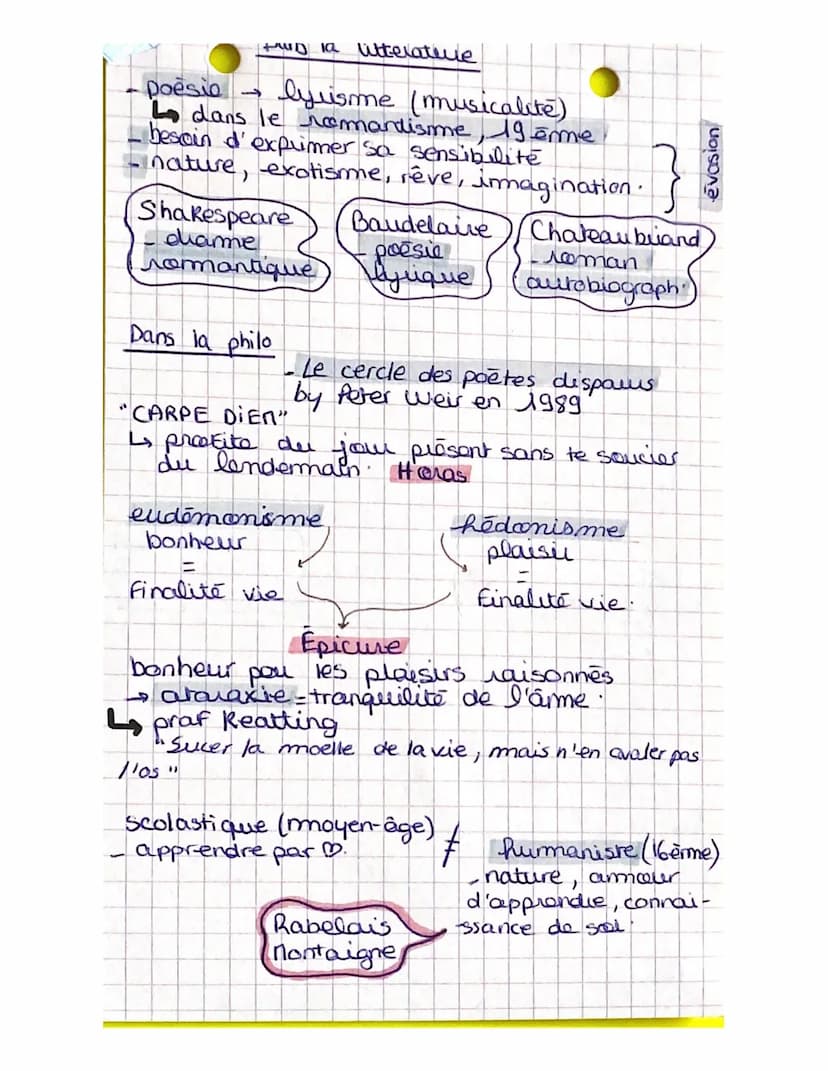 la litterature
- poésie → lyrisme (musicalité)
↳ dans le romantisme, 19ème
- besoin d'exprimer sa sensibilité
- nature, exotisme, rêve, immagination.
évasion
Shakespeare
- drame
romantique
Baudelaire
- poésie
lyrique
Chateaubriand
- roman
autobiograph.
Dans la philo
- Le cercle des poètes disparus
by Peter Weir en 1989
"CARPE DIEM"
↳ profite du jour présent sans te soucier
du lendemain. Horas
eudémonisme
bonheur
=
finalité vie
hédonisme
plaisir
=
finalité vie.
Épicure
bonheur par les plaisirs raisonnés
→ ataraxie = tranquilité de l'âme.
↳ prof Keatting
"Sucer la moelle de la vie, mais n'en avaler pas
l'os"
scolastique (moyen-âge)
- apprendre par ♡.
≠
humaniste (16ème)
- nature, amour
d'apprendre, connai-
ssance de soi.
Rabelais
Montaigne